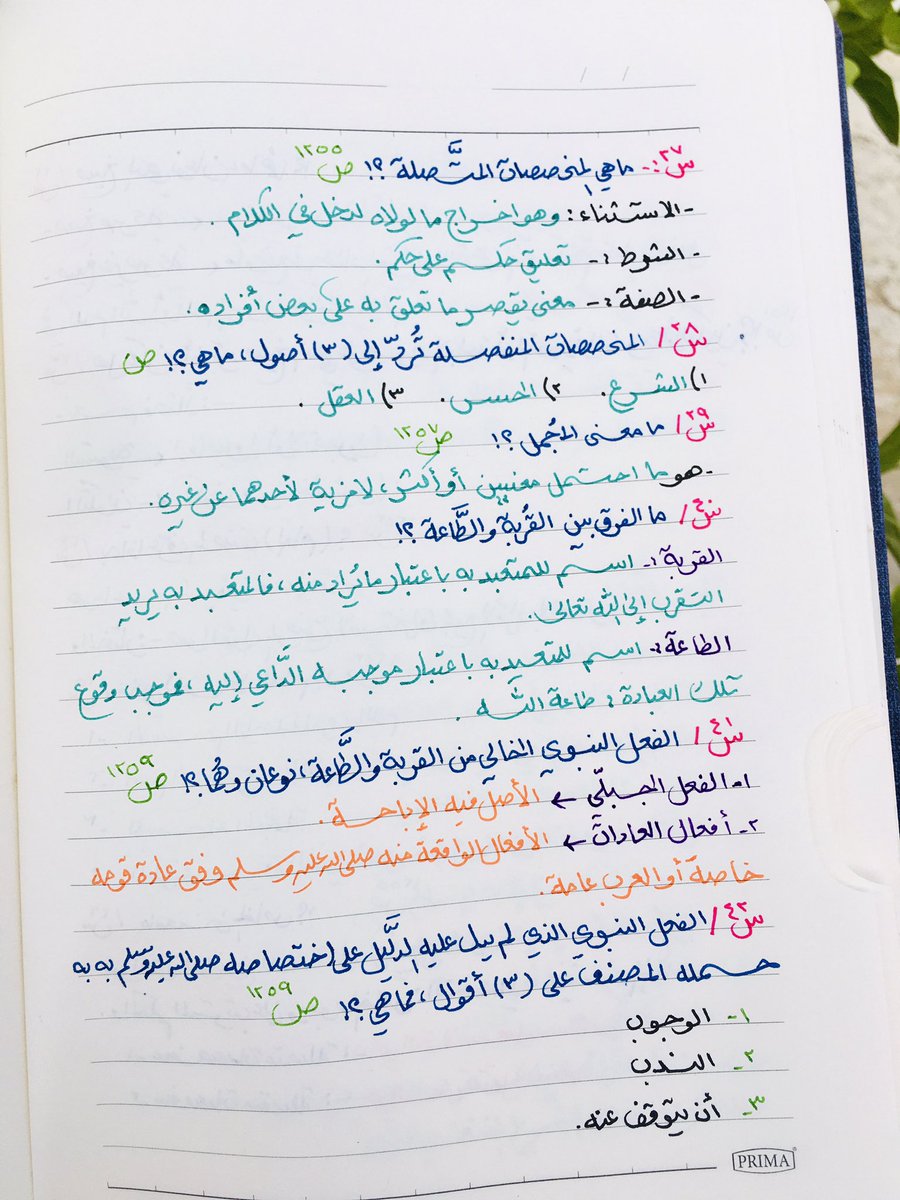 س٣٧:- ماهي المخصصات المتَّصلة ؟! ص١٢٥٥
- الاستثناء: وهو اخراج ما لولاه لدخل في الكلام .
- الشرط :- تعليق حكم على حكم .
- الصفة :- معنى يقصر ما تعلق به على بعض أفراده .
س٣٨/ المخصصات المنفصلة تُردّ إلى (٣) أصول، ماهي؟! ص
١) الشرع. ٢) الحس . ٣) العقل .
س٣٩/ ما معنى المُجمل؟! ص١٢٥٧
- هو ما احتمل معنيين أو أكثر، لا مزية لأحدهما عن غيره.
س٤٠/ ما الفرق بين القُربة والطَّاعة ؟!
القربة :- اسم للمتعبد به باعتبار ما يُراد منه ، فالمتعبد به يريد
التقرب إلى الله تعالى.
الطاعة :- اسم للمتعبد به باعتبار موجبه الدَّاعي إليه ، فموجب وقوع
تلك العبادة : طاعة الله .
س٤١/ الفعل النبوي الخالي من القربة والطَّاعة، نوعان وهُما؟! ص١٢٥٩
١- الفعل الجبلّي ← الأصل فيه الإباحة .
٢- أفعال العادات ← الأفعال الواقعة منه صلى الله عليه وسلم وفق عادة قومه
خاصة أو العرب عامة.
س٤٢/ الفعل النبوي الذي لم يدل عليه الدَّليل على اختصاصه صلى الله عليه وسلم به به
حمله المصنف على (٣) أقوال ، فماهي؟! ص١٢٥٩
١- الوجوب
٢- الندب
٣- أن يتوقف عنه.
PRIMA